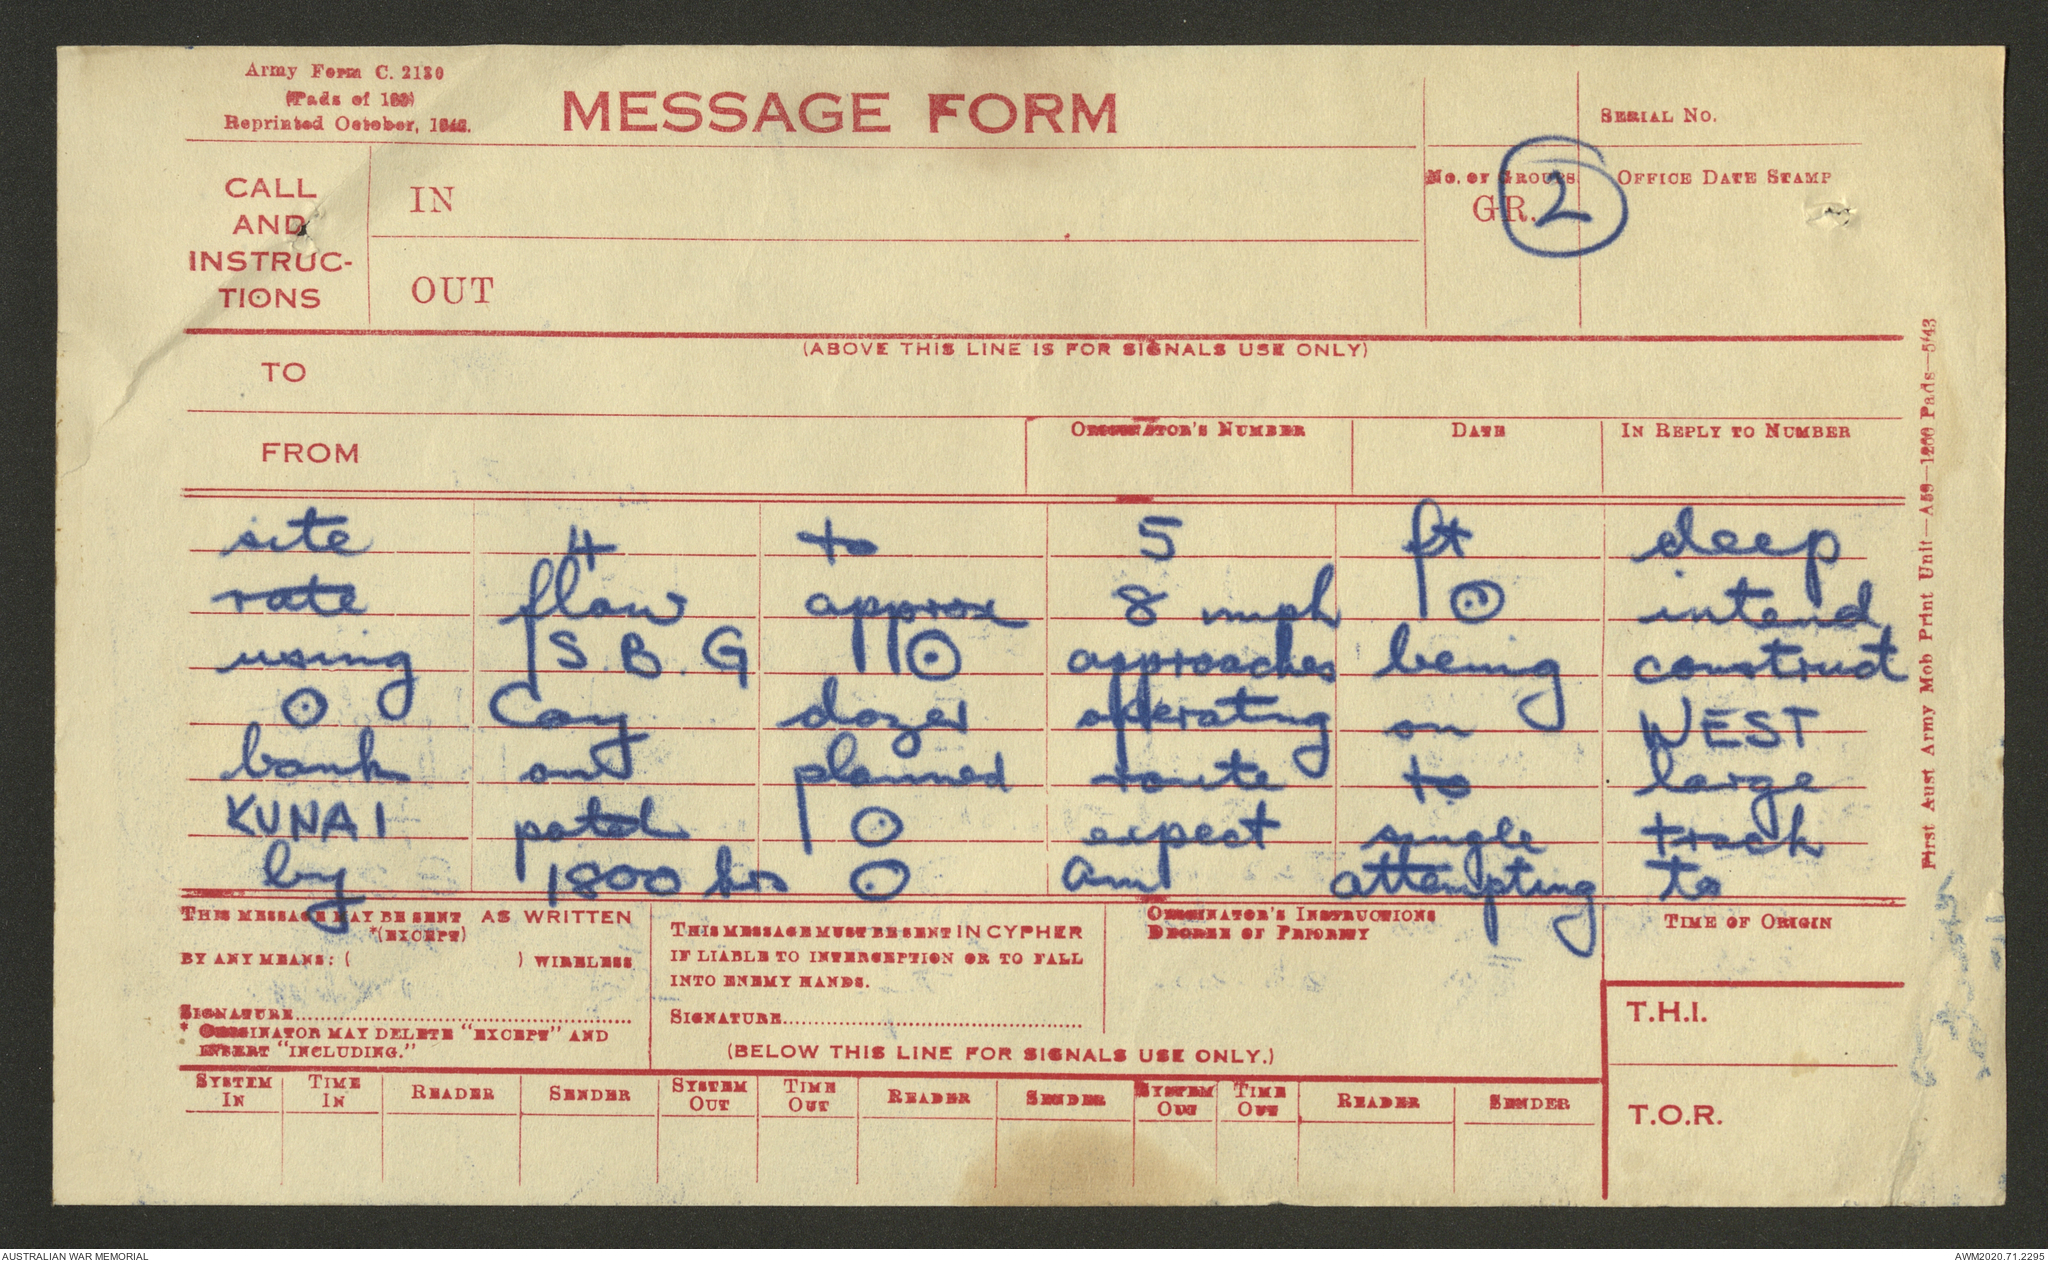 Army Form C. 2130
(Pads of 100)
Reprinted October, 1942.
MESSAGE FORM
SERIAL No.
CALL
AND
INSTRUC-
TIONS
IN
OUT
No. of Groups
GR. 2
OFFICE DATE STAMP
(ABOVE THIS LINE IS FOR SIGNALS USE ONLY)
TO
FROM
ORIGINATOR'S NUMBER
DATE
IN REPLY TO NUMBER
site 4 to 5 ft deep
rate flow approx 8 mph ⊙ intend
using S.B.G ⊙ approaches being construct
⊙ Coy dozer operating on WEST
bank and planned route to large
KUNAI patch ⊙ expect single track
by 1800 hrs ⊙ am attempting to
THIS MESSAGE MAY BE SENT AS WRITTEN
*(EXCEPT)
BY ANY MEANS: ( ) WIRELESS
SIGNATURE
* ORIGINATOR MAY DELETE "EXCEPT" AND
INSERT "INCLUDING."
THIS MESSAGE MUST BE SENT IN CYPHER
IF LIABLE TO INTERCEPTION OR TO FALL
INTO ENEMY HANDS.
SIGNATURE
(BELOW THIS LINE FOR SIGNALS USE ONLY.)
ORIGINATOR'S INSTRUCTIONS
DEGREE OF PRIORITY
TIME OF ORIGIN
T.H.I.
T.O.R.
SYSTEM IN TIME IN READER SENDER SYSTEM OUT TIME OUT READER SENDER SYSTEM OUT TIME OUT READER SENDER
First Aust Army Mob Print Unit—A59—1200 Pads—5/43
AUSTRALIAN WAR MEMORIAL
AWM2020.71.2295